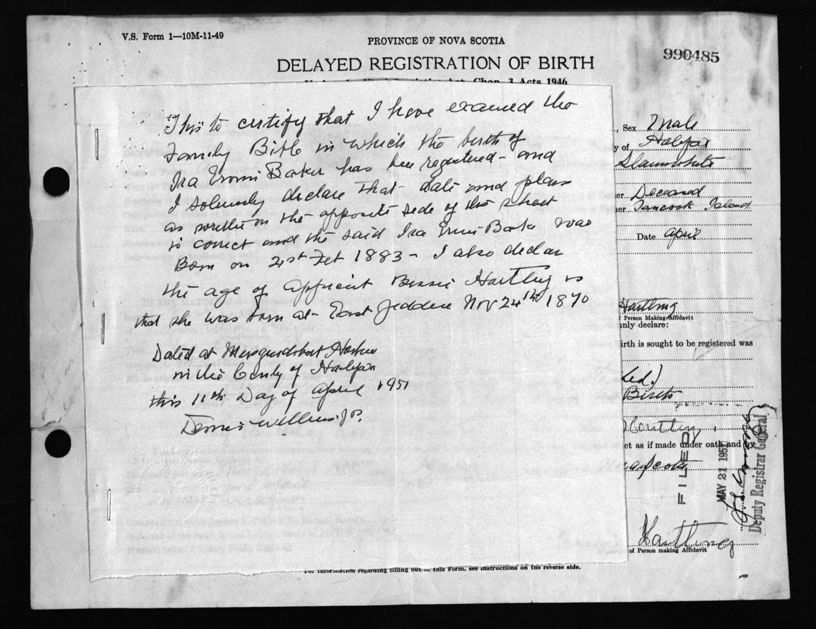 V.S. Form 1—10M-11-49
PROVINCE OF NOVA SCOTIA
990485
DELAYED REGISTRATION OF BIRTH
Chap. 3 Acts 1946
This to certify that I have examed the
Family Bible in which the birth of
Ira Baker has been registered - and
I solumly declare that date and place
as written on the opposite side of this sheet
is correct and the said Ira Baker was
Born on 21st Feb 1883 - I also declar
the age of applicant Bessie Hartling is
that she was born at East Jeddore Nov 24th 1870
Dated at Musquodoboit Harbor
in the County of Halifax
this 11th Day of April 1951
Dennis Williams J.P.
Sex Male
y of Halifax
Deceased
Tancook Island
Date April
Hartling
f Person Making Affidavit
nly declare:
irth is sought to be registered was
Birth
Hartling
ct as if made under oath and
FILED
MAY 21 1951
Deputy Registrar General
Hartling
of Person making Affidavit
For information regarding filling out of this Form, see instructions on the reverse side.